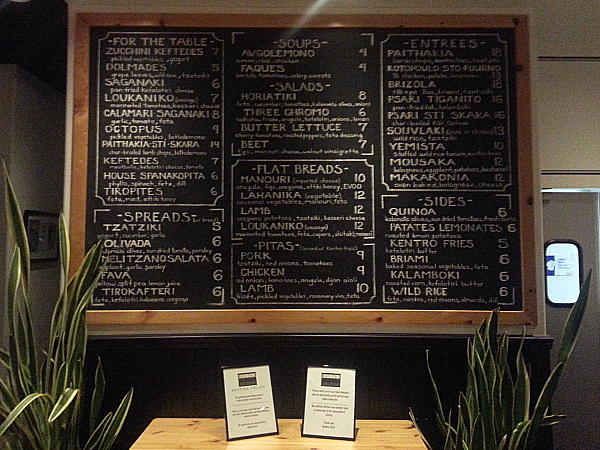 FOR THE TABLE
ZUCCHINI KEFTEDES 7
pickled vegetables, yogurt
DOLMADES 5
grape leaves, wild rice, tzatziki
SAGANAKI 8
pan-fried kefalotiri cheese
LOUKANIKO (sausage) 7
marinated tomatoes, kasseri cheese
CALAMARI SAGANAKI 8
garlic, tomato, feta
OCTOPUS 9
pickled vegetables, latholemono
PAITHAKIA STI SKARA 14
char-broiled lamb chops, latholemono
KEFTEDES 7
meatballs, kefalotiri cheese, tomato
HOUSE SPANAKOPITA 6
phyllo, spinach, feta, dill
TIROPITES 6
feta, mint, attiki honey
SPREADS
TZATZIKI 5
yogurt, cucumber, garlic
OLIVADA 5
kalamata olives, sun dried tomato, parsley
MELITZANOSALATA 6
eggplant, garlic, parsley
FAVA 5
yellow split pea, lemon juice
TIROKAFTERI 6
feta, kefalotiri, habanero, oregano
SOUPS
AVGOLEMONO 4
rice, chicken
FAQUES 4
lentils, tomatoes, celery, carrots
SALADS
HORIATIKI 8
feta, cucumber, tomatoes, kalamata olives, onions
THREE CHROMO 6
arugula, kefalotiri, onions, lemon
BUTTER LETTUCE 7
tomatoes, roasted peppers, feta dressing
BEET 7
figs, manouri cheese, walnut vinaigrette
FLAT BREADS
MANOURI (imported cheese) 10
arugula, figs, oregano, attiki honey, EVOO
LAHANIKA (vegetable) 12
seasonal vegetables, manouri, feta
LAMB 12
oregano potatoes, tzatziki, kasseri cheese
LOUKANIKO (sausage) 12
marinated tomatoes, feta, capers, shiitaki, manouri
PITAS
PORK 9
tzatziki, red onions, tomatoes
CHICKEN 9
red onion, tomatoes, arugula, dijon aioli
LAMB 10
frisée, pickled vegetables, rosemary vin., feta
ENTREES
PAITHAKIA 18
KOTOPOULO STO FOURNO 13
½ chicken, potato, lemon
BRIZOLA 18
PSARI TIGANITO 16
PSARI STI SKARA 16
char-broiled fish
SOUVLAKI (pork or chicken) 13
wild rice, tzatziki
YEMISTA 10
MOUSAKA 12
bolognese, eggplant, potatoes
MAKARONIA 12
oven baked, bolognese, cheese
SIDES
QUINOA 6
kalamata olives, sun dried tomatoes
PATATES LEMONATES 6
roasted lemon potatoes
KENTRO FRIES 5
kefalotiri butter
BRIAMI 6
baked seasonal vegetables, feta
KALAMBOKI 6
roasted corn, kefalotiri butter
WILD RICE 6
feta, raisins, red onions, almonds, dill